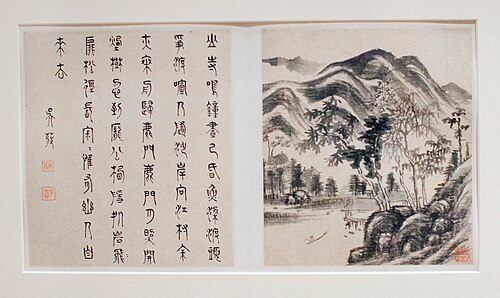 山寺鳴鐘晝已昏魚梁渡頭
爭渡喧人隨沙岸向江村余
亦乘舟歸鹿門鹿門月照開
煙樹忽到龐公棲隱処岩
扉松徑長寂惟有幽人自
来去